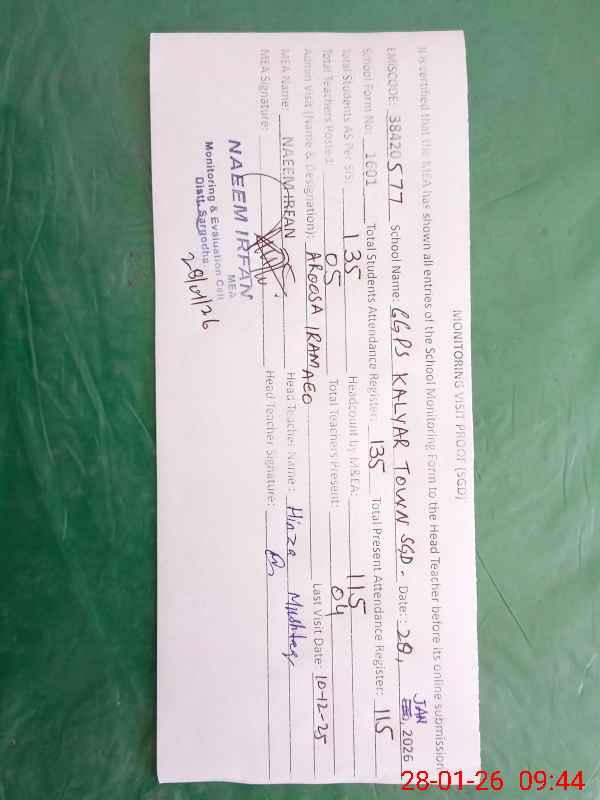 MONITORING VISIT PROOF (SGD)
It is certified that the MEA has shown all entries of the School Monitoring Form to the Head Teacher before its online submission
EMISCODE: 38420577 School Name: GGPS KALYAR TOWN SGD. Date: 28, JAN, 2026
School Form No: 1601 Total Students Attendance Register: 135 Total Present Attendance Register: 115
Total Students AS Per SIS: 135 Headcount by M&EA: 115
Total Teachers Posted: 05 Total Teachers Present: 04
Admin Visit (Name & Designation): AROOSA IRAM AEO Last Visit Date: 10-12-25
MEA Name: NAEEM IRFAN Head Teacher Name: Hinza Mushtaq
MEA Signature: Head Teacher Signature:
NAEEM IRFAN
MEA
Monitoring & Evaluation Cell
Distt. Sargodha
28/01/26
28-01-26 09:44